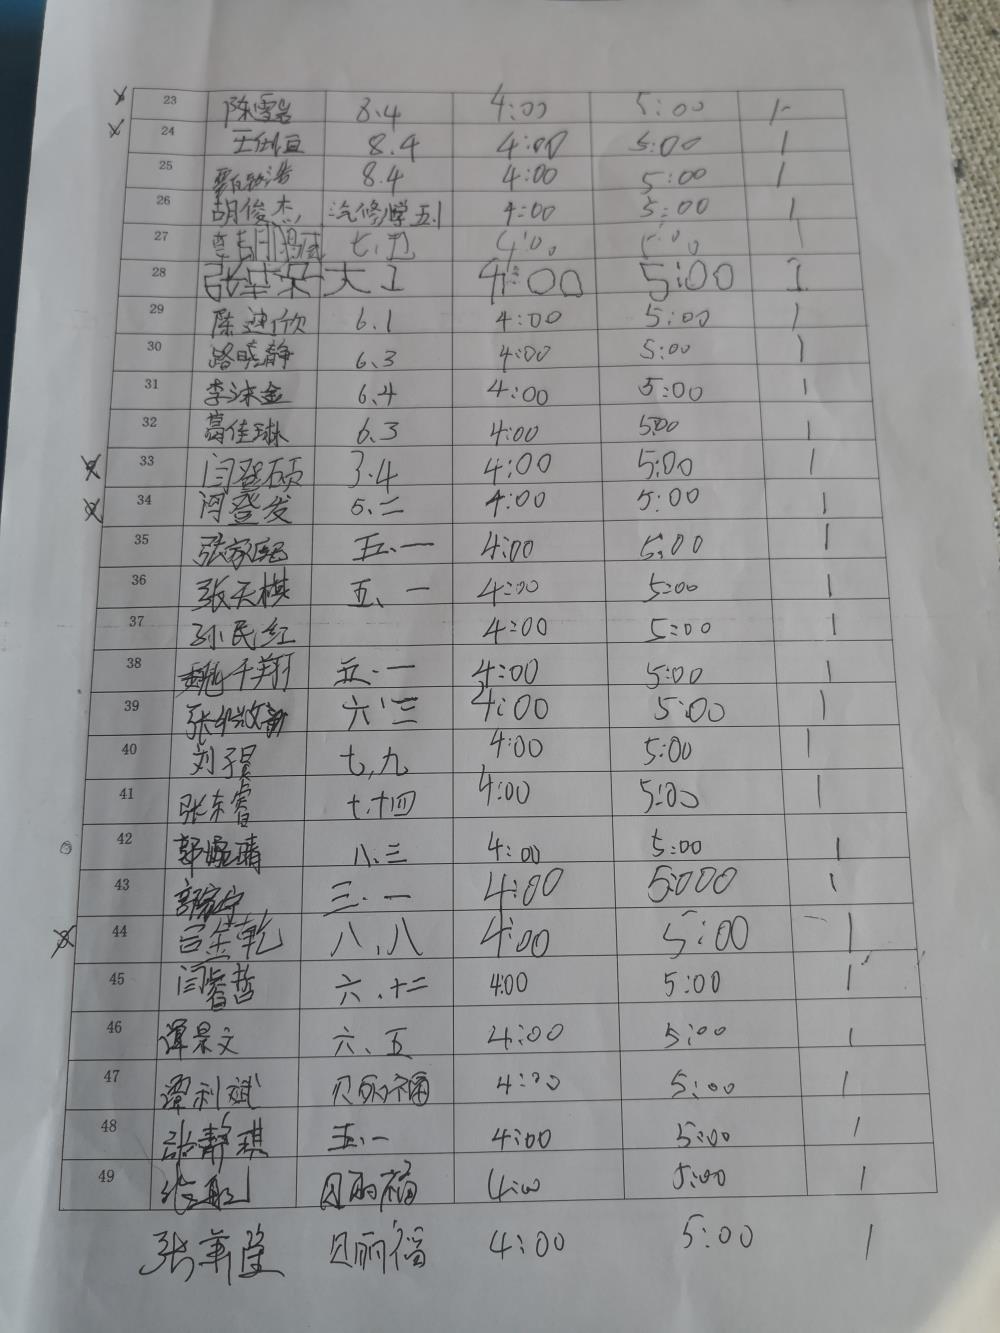 23 陈雪岩 8.4 4:00 5:00 1
24 王 8.4 4:00 5:00 1
25 8.4 4:00 5:00 1
26 胡俊杰 汽修学五.1 4:00 5:00 1
27 七.五 4:00 5:00 1
28 张 大 1 4:00 5:00 1
29 陈迪欣 6.1 4:00 5:00 1
30 路晓静 6.3 4:00 5:00 1
31 李沫金 6.4 4:00 5:00 1
32 葛佳琳 6.3 4:00 5:00 1
33 闫登硕 3.4 4:00 5:00 1
34 闫登发 5.二 4:00 5:00 1
35 张家熙 五.一 4:00 5:00 1
36 张天棋 五、一 4:00 5:00 1
37 孙民红 4:00 5:00 1
38 魏千翔 五.一 4:00 5:00 1
39 张 六.三 4:00 5:00 1
40 刘子昊 七,九 4:00 5:00 1
41 张东睿 七.十四 4:00 5:00 1
42 郭 晴 八.三 4:00 5:00 1
43 郭家宁 三.一 4:00 5:000 1
44 金乾 八.八 4:00 5:00 1
45 闫睿哲 六.十二 4:00 5:00 1
46 谭景文 六、五 4:00 5:00 1
47 谭利斌 贝丽福 4:00 5:00 1
48 张静琪 五.一 4:00 5:00 1
49 贝丽福 4:00 5:00 1
张 贝丽福 4:00 5:00 1